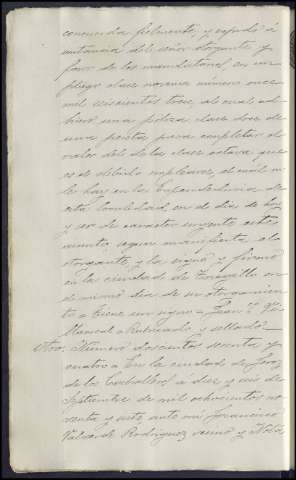 concuerda fielmente, y expido á
instancia del señor otorgante y
favor de los mandatarios en un
pliego clase novena número once
mil seiscientos trece, al cual ad-
hiero una poliza clase doce de
una peseta para completar el
valor del de la clase octava que
es el debido emplearse, el cual no
le hay en la Expendeduria de
esta localidad, en el dia de hoy
y ser de caracter urgente este
asunto, segun manifiesta el
otorgante, y la signo y firmo
en la ciudad de
el mismo dia de su otorgamien-
to = Tiene un signo = Juan
Mariscal = Rubricado, y sellado =
Otro. Número doscientos setenta y
cuatro = En la ciudad de Jerez
de los Caballeros á diez y seis de
Septiembre de mil ochocientos no-
venta y siete ante mi Francisco
Valverde Rodriguez vecino y Nota